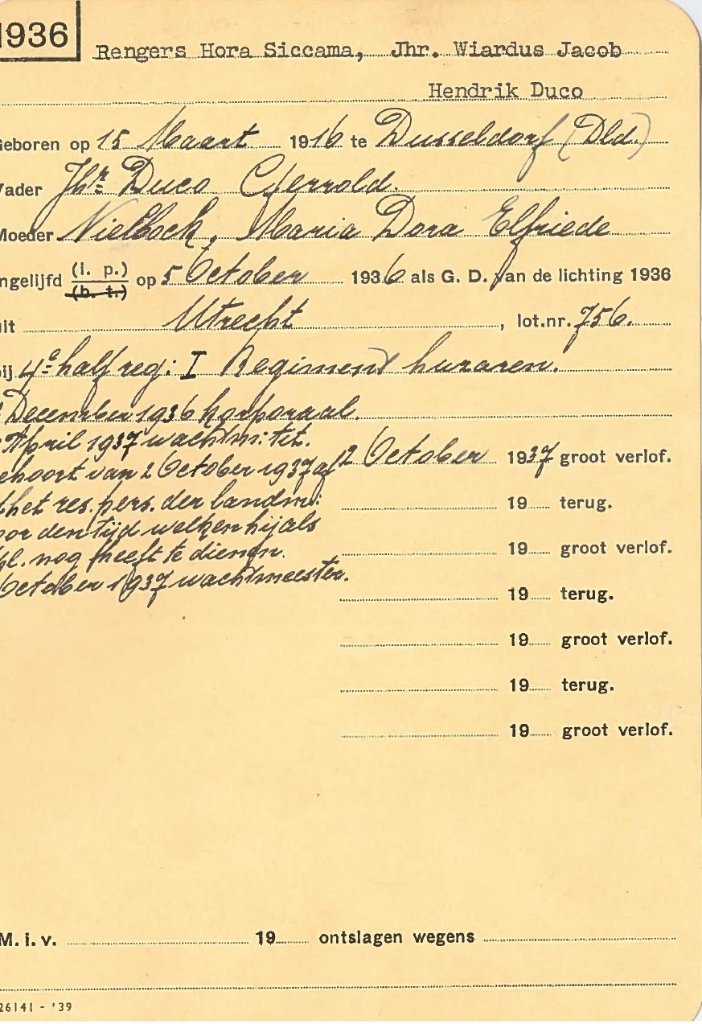 1936
Rengers Hora Siccama, Jhr. Wiardus Jacob
Hendrik Duco
Geboren op 15 Maart 1916 te Dusseldorf (Dld.)
Vader Jhr. Duco Gerrold.
Moeder Nielbock, Maria Dora Elfriede
ngelijfd (i. p.) (b. t.) op 5 October 1936 als G. D. van de lichting 1936
uit Utrecht, lot.nr. 756.
bij 4e half reg: I Regiment huzaren.
December 1936 korporaal.
April 1937 wachtm: tit.
ehoort van 2 October 1937 af
het res. pers. der landm:
oor den tijd welken hij als
pl. nog heeft te dienen.
October 1937 wachtmeester.
2 October 1937 groot verlof.
19 terug.
19 groot verlof.
19 terug.
19 groot verlof.
19 terug.
19 groot verlof.
M. i. v. 19 ontslagen wegens
26141 - '39